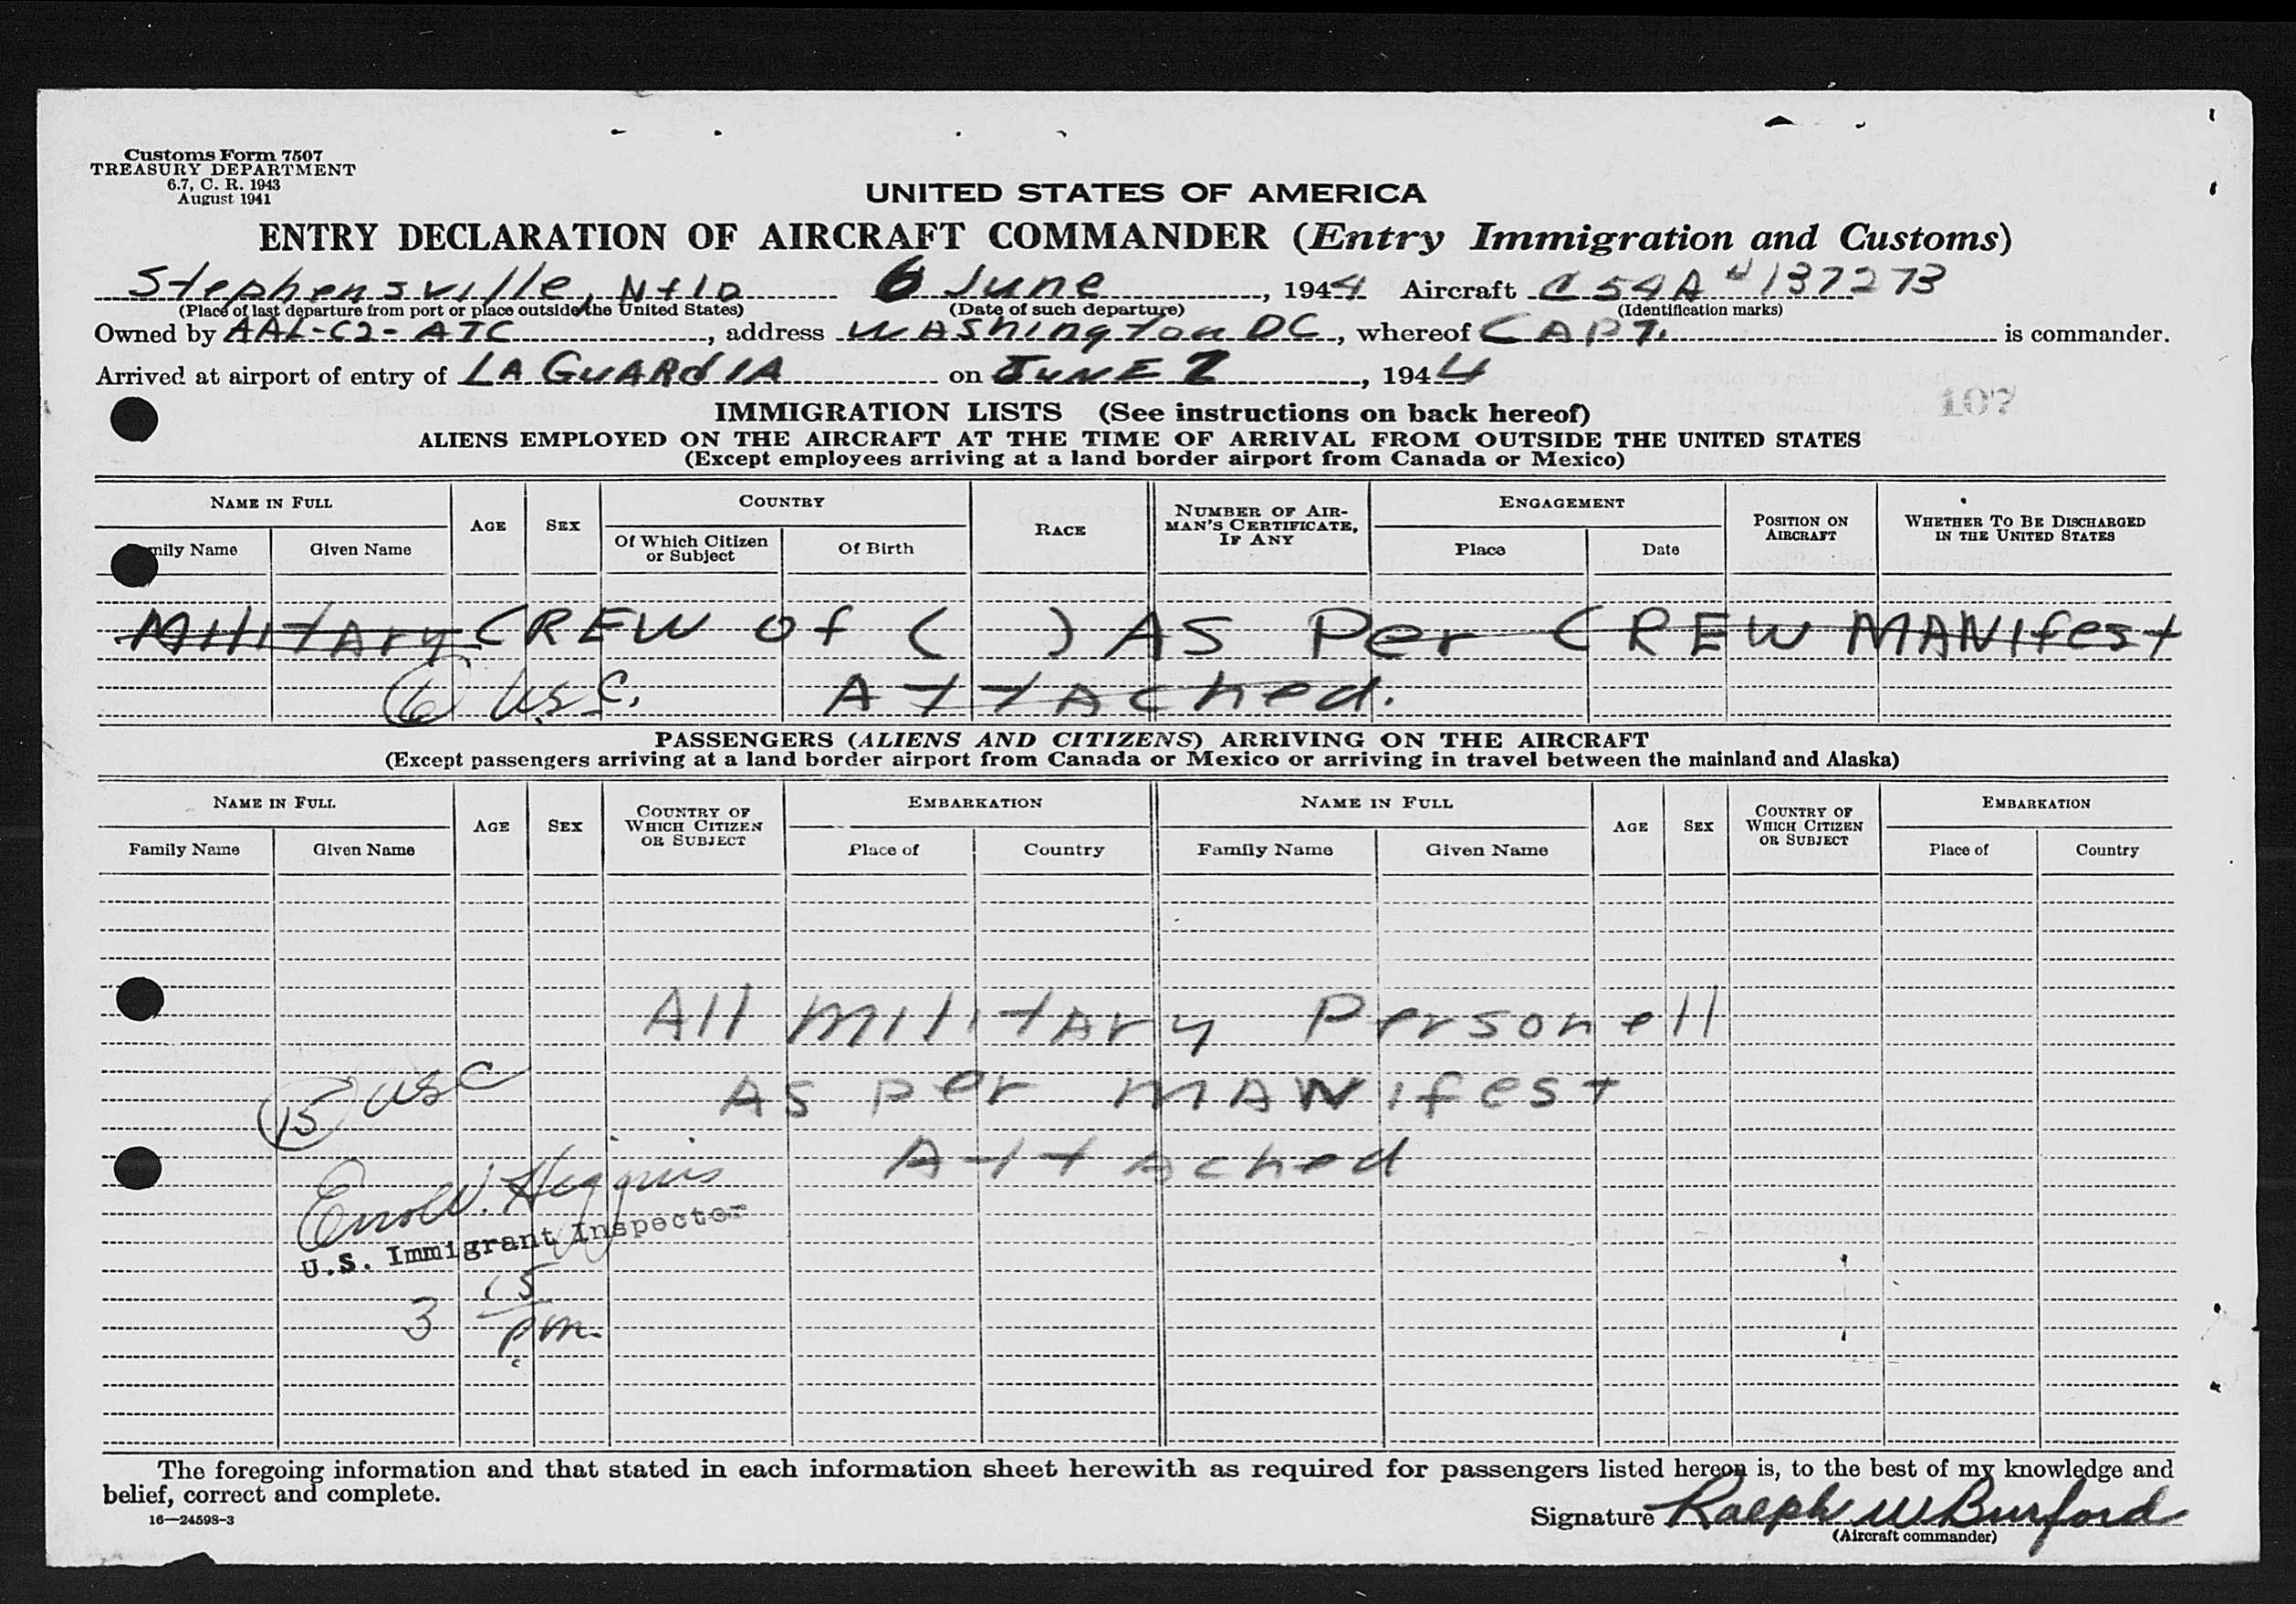 Customs Form 7507
TREASURY DEPARTMENT
6.7, C. R. 1943
August 1941
UNITED STATES OF AMERICA
ENTRY DECLARATION OF AIRCRAFT COMMANDER (Entry Immigration and Customs)
Stephensville, Nfld 6 June, 1944 Aircraft C54A # 137273
(Place of last departure from port or place outside the United States) (Date of such departure) (Identification marks)
Owned by AAL-C2-ATC, address Washington DC, whereof CAPT. is commander.
Arrived at airport of entry of LA GUARdIA on JUNE 7, 1944
107
IMMIGRATION LISTS (See instructions on back hereof)
ALIENS EMPLOYED ON THE AIRCRAFT AT THE TIME OF ARRIVAL FROM OUTSIDE THE UNITED STATES
(Except employees arriving at a land border airport from Canada or Mexico)
NAME IN FULL AGE SEX COUNTRY RACE NUMBER OF AIRMAN'S CERTIFICATE, IF ANY ENGAGEMENT POSITION ON AIRCRAFT WHETHER TO BE DISCHARGED IN THE UNITED STATES
Family Name Given Name Of Which Citizen or Subject Of Birth Place Date
Military CREW of ( ) AS Per CREW MANifest
(6) USC. Attached.
PASSENGERS (ALIENS AND CITIZENS) ARRIVING ON THE AIRCRAFT
(Except passengers arriving at a land border airport from Canada or Mexico or arriving in travel between the mainland and Alaska)
NAME IN FULL AGE SEX COUNTRY OF WHICH CITIZEN OR SUBJECT EMBARKATION NAME IN FULL AGE SEX COUNTRY OF WHICH CITIZEN OR SUBJECT EMBARKATION
Family Name Given Name Place of Country Family Name Given Name Place of Country
All Military Personell
(15) USC As per MANifest
Attached
Errol W. Higgins
U.S. Immigrant Inspector
3 15 pm.
The foregoing information and that stated in each information sheet herewith as required for passengers listed hereon is, to the best of my knowledge and
belief, correct and complete.
16—24598-3
Signature Ralph W Burford
(Aircraft commander)